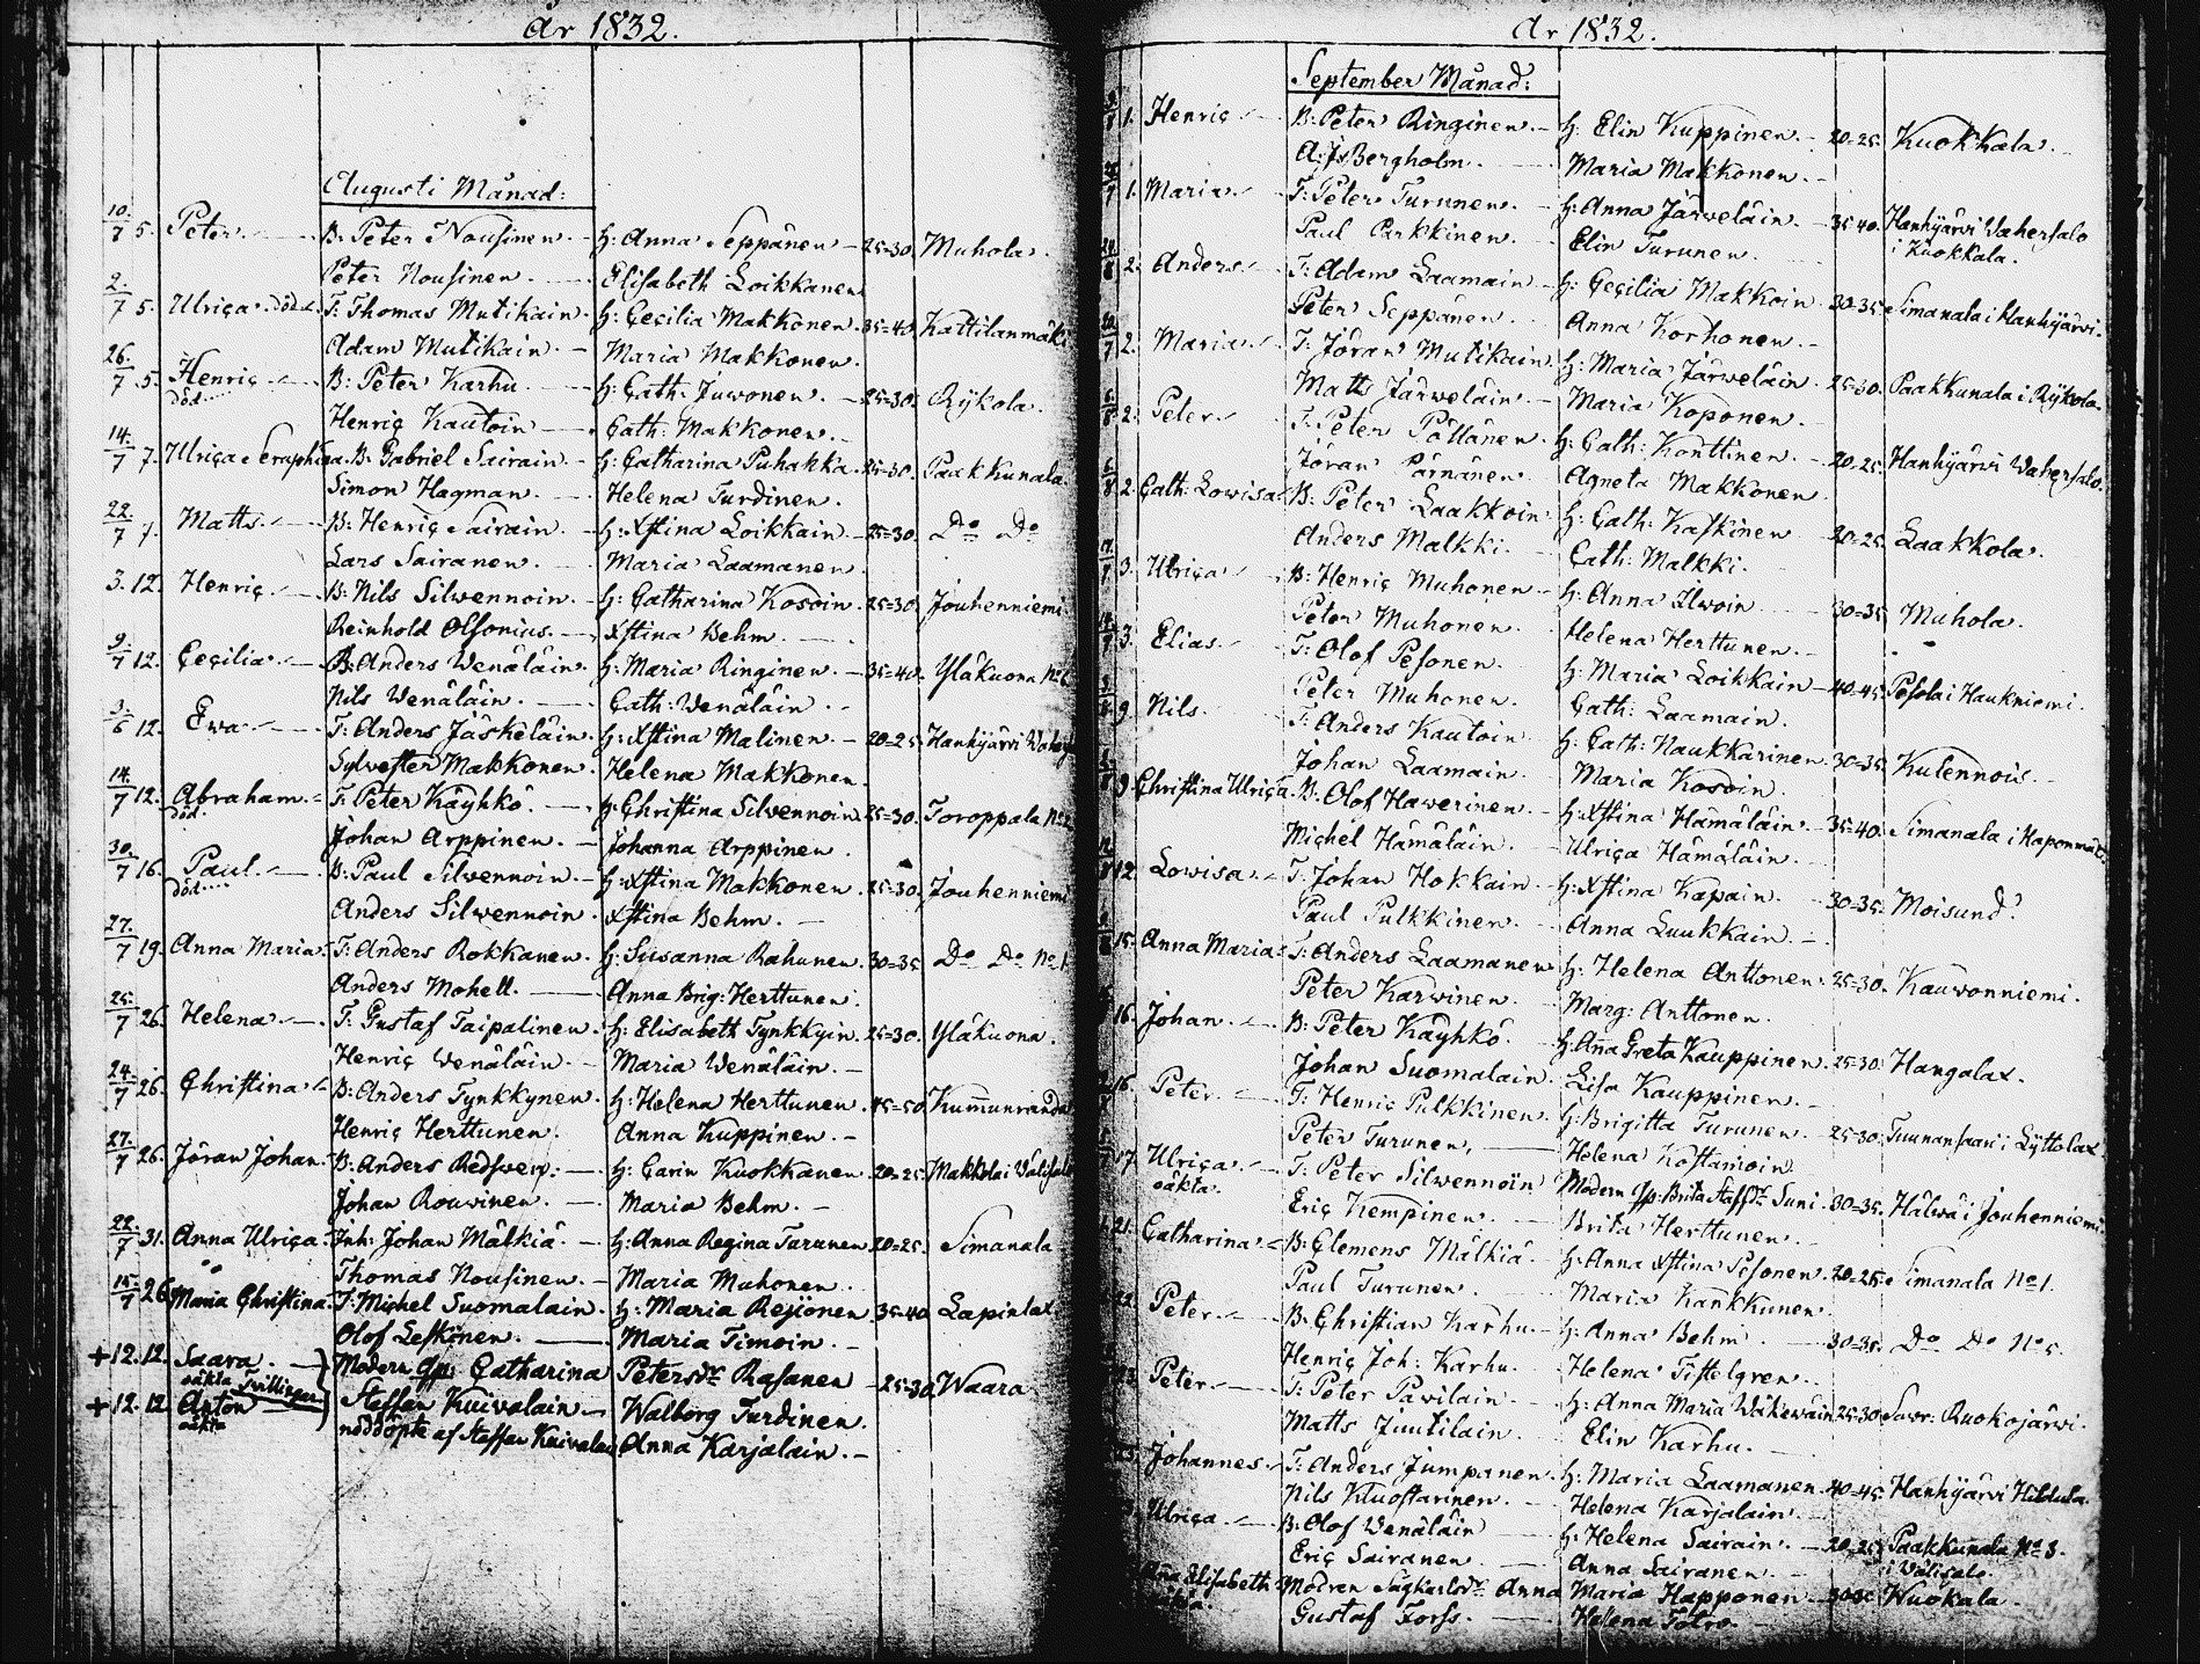 År 1832.
Augusti Månad:
10/7 5. Peter. B: Peter Nousinen. H: Anna Seppänen 25=30. Muhola.
Peter Nousinen. Elisabeth Loikkanen
2/7 5. Ulrica. död. T: Thomas Mutikain. H: Cecilia Makkonen. 35=40. Kattilanmäki
Adam Mutikain. Maria Makkonen.
26/7 5. Henric B: Peter Karhu. H: Cath: Juwonen. 25=30. Rykola.
död. Henric Kautoin Cath: Makkonen.
14/7 7. Ulrica Seraphina. B: Gabriel Sairain. H: Catharina Puhakka. 25=30. Paakkunala.
Simon Hagman. Helena Turdinen.
22/7 7. Matts. B: Henric Sairain. H: Xstina Loikkain. 25=30. Do Do
Lars Sairanen. Maria Laamanen
3. 12. Henric B: Nils Silwennoin. H: Catharina Kosoin. 25=30. Jouhenniemi
Reinhold Olsonius. Xstina Behm.
9/7 12. Cecilia B: Anders Wenäläin. H: Maria Ringinen. 35=40. Yläkuona No
Nils Wenäläin. Cath: Wenäläin.
3/6 12. Ewa. T: Anders Jäskeläin. H: Xstina Malinen. 20=25. Hanhijärvi
Sylvester Makkonen. Helena Makkonen
14/7 12. Abraham. T: Peter Käyhkö. H: Christina Silwennoin. 25=30. Toroppala No
död. Johan Arppinen. Johanna Arppinen.
30/7 16. Paul. B: Paul Silwennoin. H: Xstina Makkonen. 25=30. Jouhenniemi
död. Anders Silwennoin. Xstina Behm.
27/7 19. Anna Maria. T: Anders Rokkanen. H: Susanna Rahunen. 30=35. Do Do No 1.
Anders Mohell. Anna Brig: Herttunen.
25/7 26. Helena T: Gustaf Taipalinen. H: Elisabeth Tynkkyin. 25=30. Yläkuona.
Henric Wenäläin. Maria Wenäläin.
24/7 26. Christina B: Anders Tynkkynen. H: Helena Herttunen. 45=50. Kummunranda
Henric Herttunen. Anna Kuppinen.
27/7 26. Jöran Johan. B: Anders Redswen. H: Carin Kuokkanen. 20=25. Makkola i Välisalo
Johan Rouwinen. Maria Behm.
22/7 31. Anna Ulrica. Inh: Johan Mälkiä. H: Anna Regina Turunen 20=25. Simanala
Thomas Nousinen. Maria Muhonen.
15/7 26. Maria Christina. T: Michel Suomalain. H: Maria Reijonen 35=40. Lapinlax
Olof Leskinen. Maria Timoin.
+12. 12. Saara. Modern Catharina Petersdr Rasanen 25=30. Waara
oäkta Tvillingar Steffan Kuivalain Walborg Turdinen.
+12. 12 Anton nöddöpte af Steffan Kuivalain Anna Karjalain.
oäkta
År 1832.
September Månad:
1. Henric B: Peter Ringinen. H: Elin Kuppinen. 20=25. Kuokkala.
A: Js Bergholm. Maria Makkonen.
1. Maria T: Peter Turunen. H: Anna Järweläin. 35=40. Hanhijärvi Wahersalo
Paul Parkkinen. Elin Turunen. i Kuokkala.
2. Anders. T: Adam Laamain H: Cecilia Makkoin 30=35. Simanala i Hanhijärvi.
Peter Seppänen. Anna Korhonen.
2. Maria T: Jöran Mutikain. H: Maria Järweläin. 25=30. Paakkunala i Rykola.
Matts Järweläin. Maria Koponen.
2. Peter. T: Peter Pöllänen. H: Cath: Konttinen. 20=25. Hanhijärvi Wahersalo.
Jöran Pärnänen. Agneta Makkonen
2. Cath: Lowisa B: Peter Laakkoin H: Cath: Kaskinen 20=25. Laakkola.
Anders Malkki. Cath: Malkki.
3. Ulrica B: Henric Muhonen H: Anna Ilwoin 30=35. Muhola.
Peter Muhonen. Helena Herttunen.
3. Elias. T: Olof Pesonen. H: Maria Loikkain 40=45. Pesola i Haukniemi.
Peter Muhonen. Cath: Laamain.
9. Nils. T: Anders Kautoin H: Cath: Naukkarinen. 30=35. Kulennois.
Johan Laamain. Maria Kosoin.
9 Christina Ulrica. B: Olof Hawerinen. H: Xstina Hämäläin. 35=40. Simanala i Haponmäki
Michel Hämäläin. Ulrica Hämäläin.
12. Lowisa. T: Johan Hokkain. H: Xstina Kapain. 30=35. Moisund.
Paul Pulkkinen. Anna Luukkain.
15. Anna Maria T: Anders Laamanen H: Helena Anttonen. 25=30. Kauwonniemi.
Peter Karwinen. Marg: Anttonen.
16. Johan. B: Peter Käyhkö. H: Anna Greta Kauppinen. 25=30. Hangalax.
Johan Suomalain. Lisa Kauppinen.
16. Peter. T: Henric Pulkkinen. H: Brigitta Turunen. 25=30. Tuunansaari i Lyttolax.
Peter Turunen, Helena Kostamoin
17. Ulrica. T: Peter Silwennoin Modern Brita Staffsdr Suni. 30=35. Hälwä i Jouhenniemi.
oäkta. Eric Kempinen. Brita Herttunen.
21. Catharina B: Clemens Mälkiä. H: Anna Xstina Pesonen. 20=25. Simanala No 1.
Paul Turunen. Maria Kankkunen
22. Peter B: Christian Karhu. H: Anna Behm 30=35. Do Do No 5.
Henric Joh: Karhu. Helena Tistelgren.
Peter. T: Peter Pawilain. H: Anna Maria Wäkewäin 25=30. Savr: Ruokojärwi.
Matts Juutilain. Elin Karhu.
Johannes. T: Anders Jumpanen. H: Maria Laamanen. 40=45. Hanhijärvi Hildula.
Nils Kluostarinen. Helena Karjalain.
Ulrica B: Olof Wenäläin H: Helena Sairain. 20=25. Paakkunala No 3.
Eric Sairanen. Anna Sairanen. i Wälisalo.
Anna Elisabeth Modren Anna Maria Happonen 30=35 Wuokala.
Gustaf Forss. Helena Tolro.